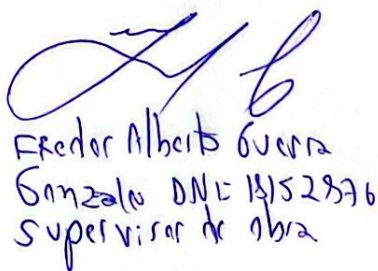 Fredor Alberto Guerra
Gonzalo DNI 18152976
Supervisor de obra